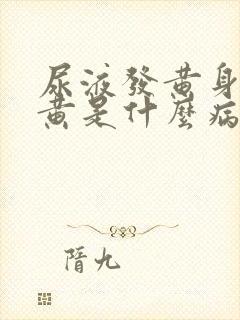 尿液發黄身
黄是什麼病
隋九